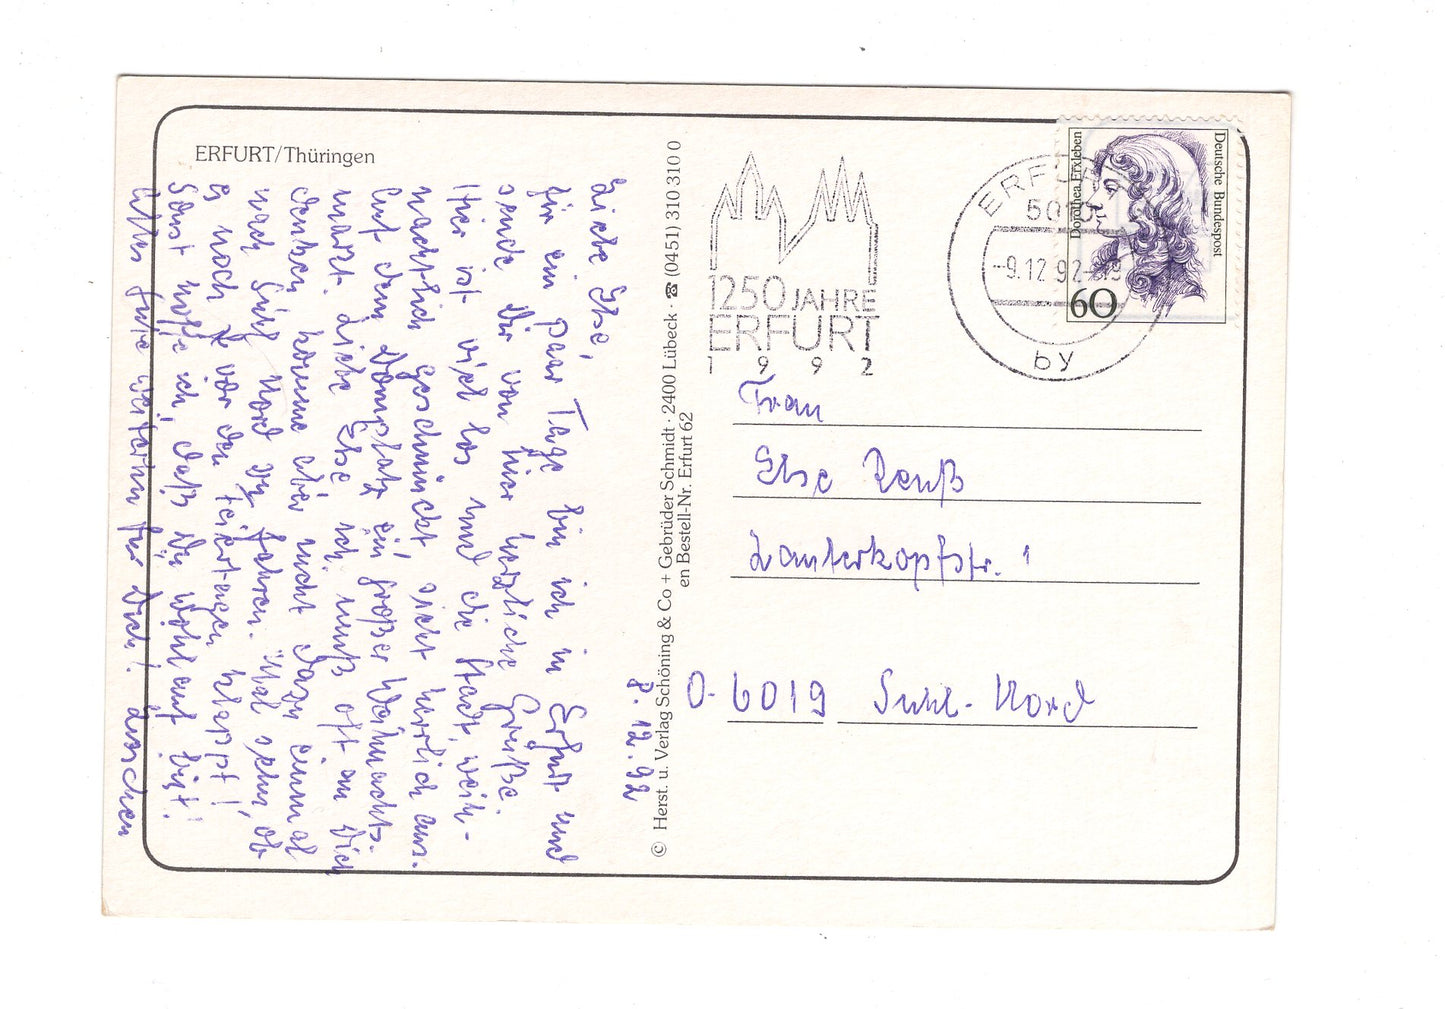 ERFURT/Thüringen
8.12.92
Liebe Else,
für ein paar Tage bin ich in Erfurt und
sende Dir von hier herzliche Grüße.
Hier ist viel los und die Stadt, weih-
nachtlich geschmückt, sieht herrlich aus.
Auf dem Domplatz ein großer Weihnachts-
markt. Liebe Else ich muß oft an Dich
denken, komme aber nicht dazu einmal
nach Suhl Nord zu fahren. Mal sehn, ob
es noch vor den Feiertagen klappt!
Sonst hoffe ich, daß Du wohlauf bist!
Alles Gute weiterhin für Dich!
© Herst. u. Verlag Schöning & Co + Gebrüder Schmidt · 2400 Lübeck · ☎ (0451) 310 310 0
en Bestell-Nr. Erfurt 62
1250 JAHRE
ERFURT
1992
ERFURT
-9.12.92-
by
Deutsche Bundespost
Dorothea Erxleben
60
Frau
Else Reuß
Lauterkopfstr. 1
O-6019 Suhl-Nord